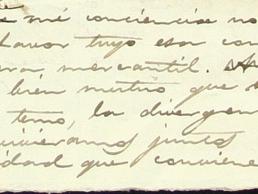 e mi conciencia no
favor tuyo esa con
ra mercantil.
bien mutuo que
temo, la divergen
vivieramos juntos
idad que conviene